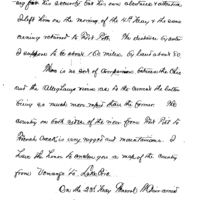 for his security but his own absolute
I left him on the morning of the 4th May & the same
morning returned to Fort Pitt. The distance by water
I suppose to be about 100 miles by land about 80
There is no sort of comparison between the Ohio
and the Allegheny river as to the current the latter
being so much more rapid than the former. The
country on both sides of the river from Fort Pitt to
French Creek is very rugged and mountainous. I
have the honor to enclose you a map of the country
from Venango to Lake Erie
On the 2nd May